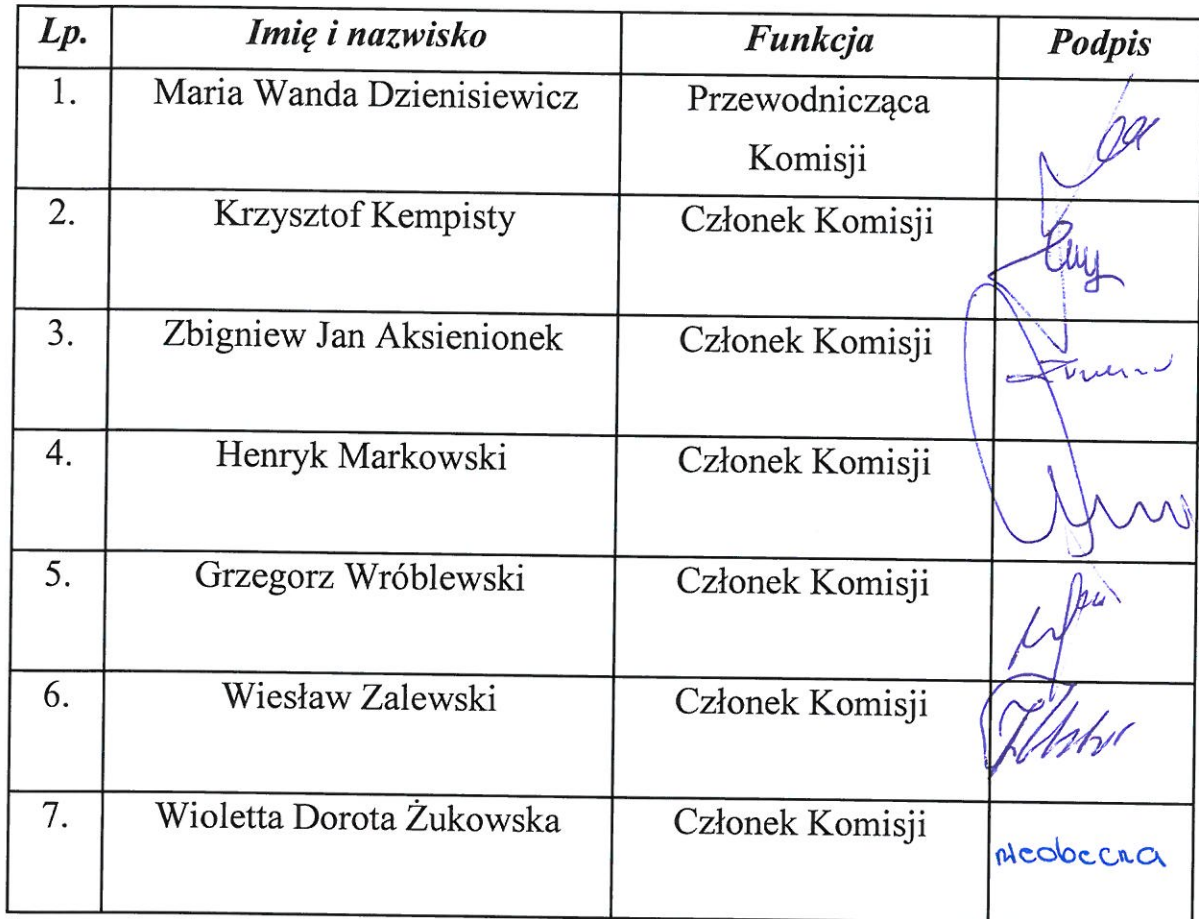 Lp. Imię i nazwisko Funkcja Podpis
1. Maria Wanda Dzienisiewicz Przewodnicząca
Komisji
2. Krzysztof Kempisty Członek Komisji
3. Zbigniew Jan Aksienionek Członek Komisji
4. Henryk Markowski Członek Komisji
5. Grzegorz Wróblewski Członek Komisji
6. Wiesław Zalewski Członek Komisji
7. Wioletta Dorota Żukowska Członek Komisji
nieobecna